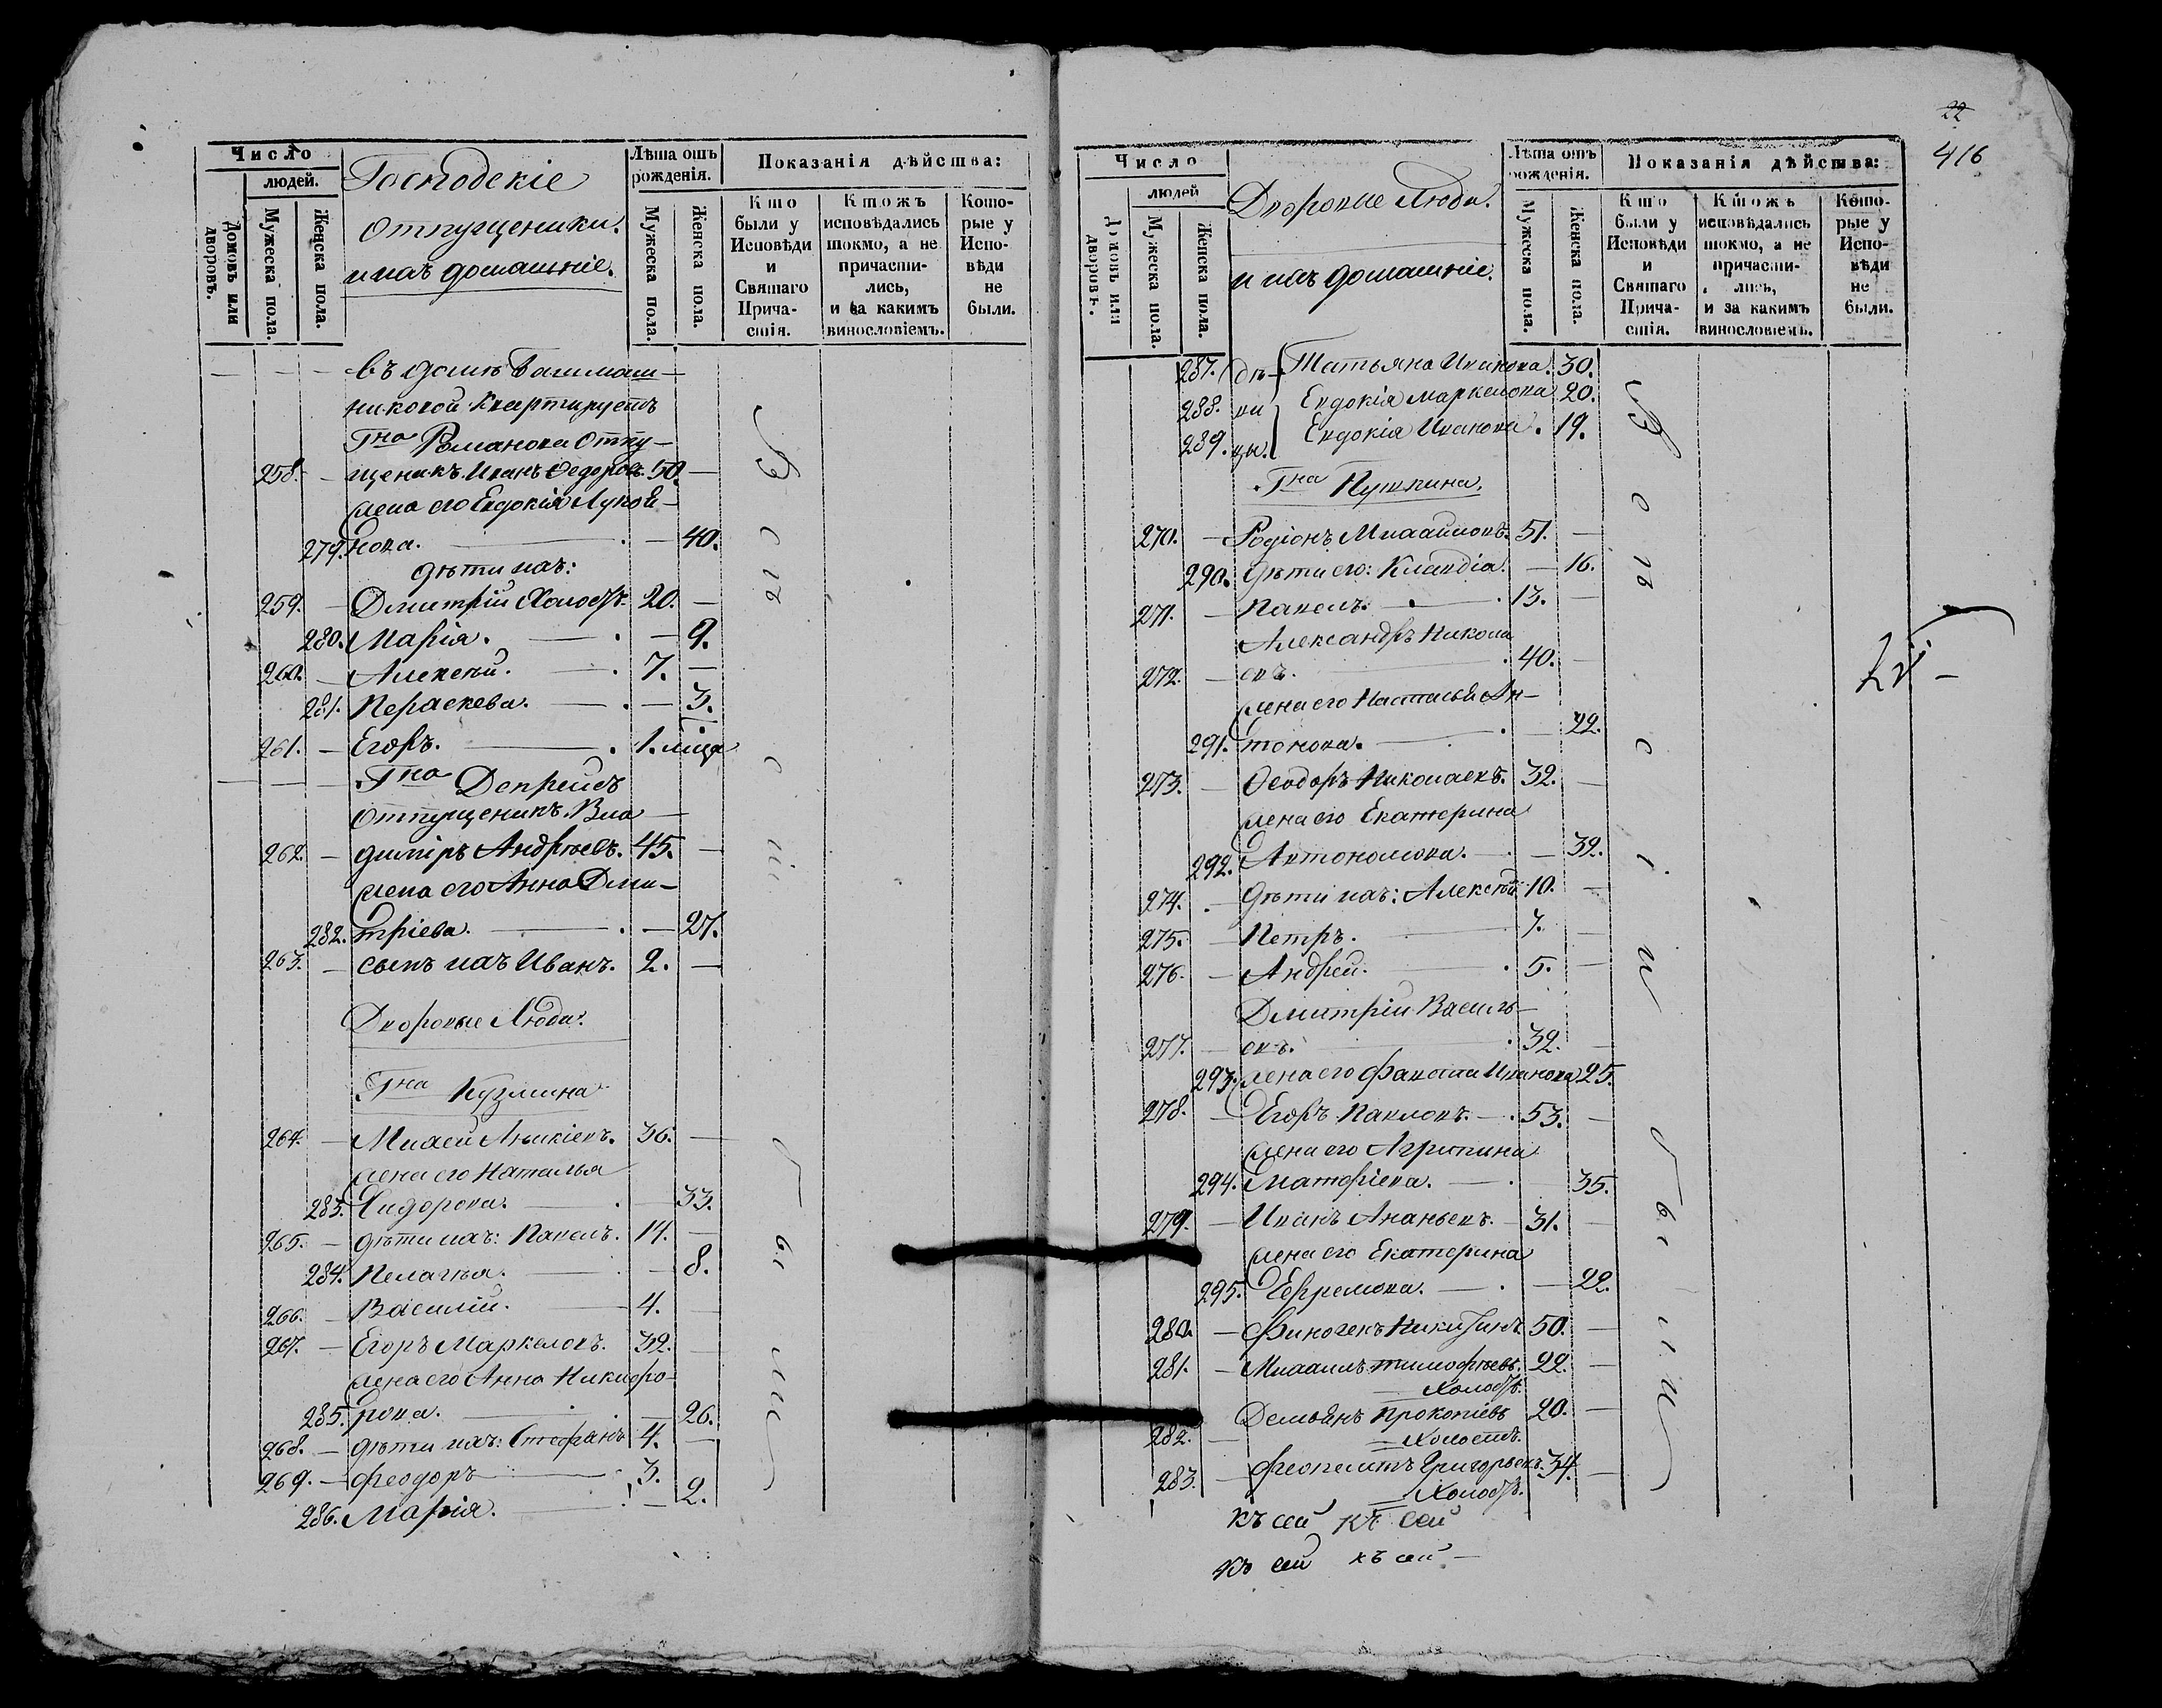 Число
людей.
Домовъ или дворовъ.
Мужеска пола.
Женска пола.
Господскіе
отпущеники.
и ихъ домашніе.
Лѣта отъ рожденія.
Мужеска пола.
Женска пола.
Показанія дѣйства:
Кто были у Исповѣди и Святаго Причастія.
Ктожъ исповѣдались токмо, а не причастились, и за какимъ винословіемъ.
Которые у Исповѣди не были.
въ домѣ Башмаш-
никовой квартируетъ
Гна Романова отпу-
258. — щеникъ Иванъ Ѳедоровъ. 50. —
жена его Евдокія Лукоя-
279. нова. — 40.
дѣти ихъ:
259. — Дмитрій Холостъ. 20. —
280. Марія. — 9.
260. — Алексѣй. 7. —
281. Параскева. — 3.
261. — Егоръ. 1. мца
Гна Депрейсъ
отпущеникъ Вла-
262. — димiръ Андрѣевъ. 45. —
жена его Анна Дми-
282. тріева. — 27.
263. — сынъ ихъ Иванъ. 2. —
Дворовые Люди.
Гна Кузмина
264. — Михей Аникіевъ. 36. —
жена его Наталья
283. Сидорова. — 33.
265. — дѣти ихъ: Павелъ. 14. —
284. Пелагья. — 8.
266. — Василій. 4. —
267. — Егоръ Маркеловъ. 32. —
жена его Анна Никифо-
285. рова. — 26.
268. — дѣти ихъ: Стефанъ 4. —
269. — Феодоръ 3.
286. Марія. — 2.
22
416
Число
людей
Домовъ или дворовъ.
Мужеска пола.
Женска пола.
Дворовые Люди.
и ихъ домашніе.
Лѣта отъ рожденія.
Мужеска пола.
Женска пола.
Показанія дѣйства:
Кто были у Исповѣди и Святаго Причастія.
Ктожъ исповѣдались токмо, а не причастились, и за какимъ винословіемъ.
Которые у Исповѣди не были.
287. дѣ- Татьяна Иванова. 30.
288. ви Евдокія Маркелова 20.
289. цы. Евдокія Иванова. 19.
Гна Пушкина.
270. — Родіонъ Михайловъ. 51. —
290. дѣти его: Клавдія. — 16.
271. — Павелъ. 13. —
Александръ Никола
272. — евъ. 40. —
жена его Настасья Ан-
291. тонова. — 22.
273. — Ѳеодоръ Николаевъ. 32. —
жена его Екатерина
292. Автономова. — 32.
274. — дѣти ихъ: Алексѣй 10. —
275. — Петръ. 7. —
276. — Андрей. 5. —
Дмитрій Василь-
277. — евъ. 32. —
293. жена его Фавста Иванова 25.
278. — Егоръ Павловъ. 53. —
жена его Агрипина
294. 35.
279. — Иванъ Ананьевъ. 31. —
жена его Екатерина
295. Ефремова. — 22.
280. — Финогенъ Никитинъ 50. —
281. — Михаилъ Тимофѣевъ. 22. —
Холостъ.
Демьянъ Прокопіевъ 20. —
282. — Холостъ.
283. — Феопемптъ Григорьевъ. 34. —
Холостъ.
къ сей къ сей
къ сей къ сей —